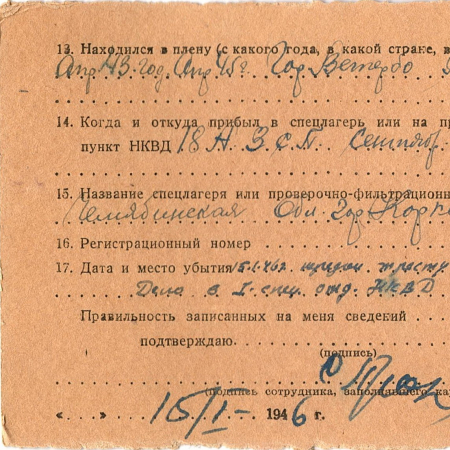 13. Находился в плену (с какого года, в какой стране, в
Апр 43 год. Апр 45 г. Гор
14. Когда и откуда прибыл в спецлагерь или на пр
пункт НКВД 18 Н. З. С. П. Сентябр
15. Название спецлагеря или проверочно-фильтрационн
Челябинская Обл Гор Корк
16. Регистрационный номер
17. Дата и место убытия 15.1.46г.
Дело в 1-спец. отд. НКВД
Правильность записанных на меня сведений
подтверждаю.
(подпись)
(подпись сотрудника, заполнившего ка
« » 15/I- 1946 г.